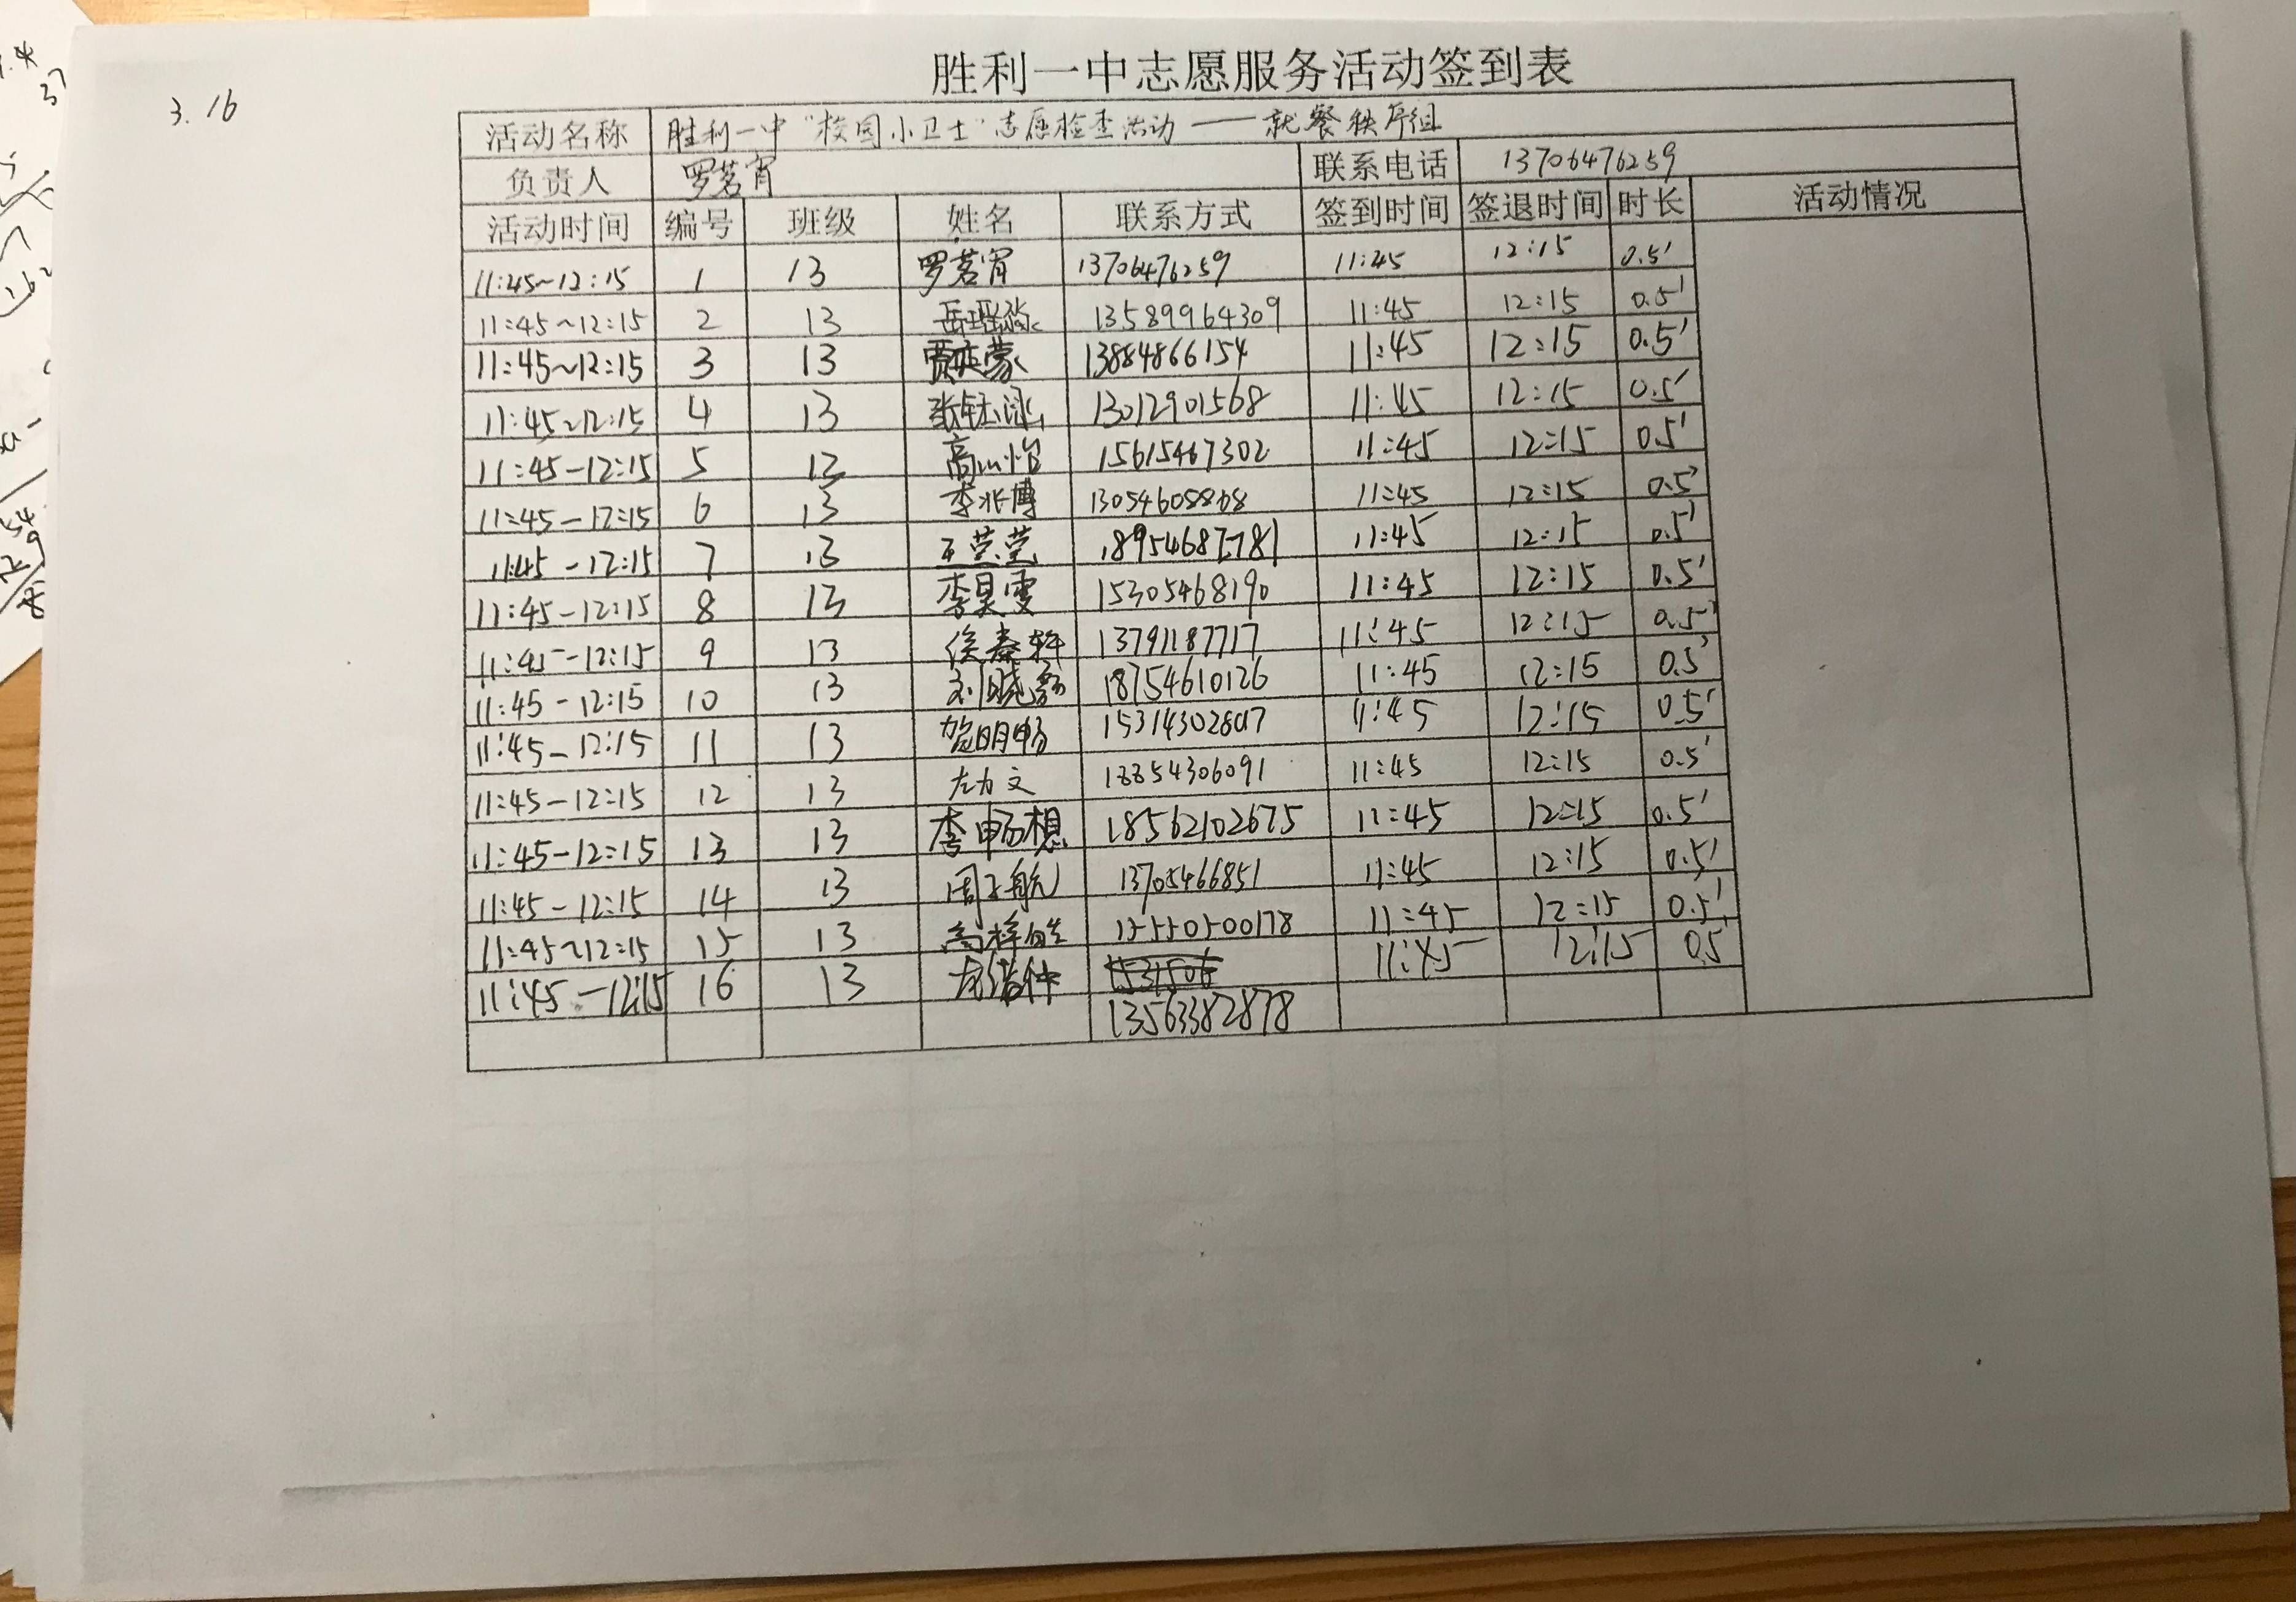 3.16
胜利一中志愿服务活动签到表
活动名称 胜利一中"校园小卫士"志愿检查活动——就餐秩序组
负责人 罗茗宵 联系电话 13706476259
活动时间 编号 班级 姓名 联系方式 签到时间 签退时间 时长 活动情况
11:45~12:15 1 13 罗茗宵 13706476259 11:45 12:15 0.5'
11:45~12:15 2 13 13589964309 11:45 12:15 0.5'
11:45~12:15 3 13 13884866154 11:45 12:15 0.5'
11:45~12:15 4 13 13012901568 11:45 12:15 0.5'
11:45-12:15 5 13 15615467302 11:45 12:15 0.5'
11:45-12:15 6 13 李兆博 11:45 12:15 0.5'
11:45-12:15 7 13 王莹莹 18954687781 11:45 12:15 0.5'
11:45-12:15 8 13 李昊雯 15305468190 11:45 12:15 0.5'
11:45-12:15 9 13 侯秦轩 13791187717 11:45 12:15 0.5'
11:45-12:15 10 13 18754610126 11:45 12:15 0.5'
11:45-12:15 11 13 11:45 12:15 0.5'
11:45-12:15 12 13 左力文 18854306091 11:45 12:15 0.5'
11:45-12:15 13 13 李畅想 18562102675 11:45 12:15 0.5'
11:45-12:15 14 13 周子航 13705466851 11:45 12:15 0.5'
11:45~12:15 15 13 15550500178 11:45 12:15 0.5'
11:45-12:15 16 13 11:45 12:15 0.5
13563382878